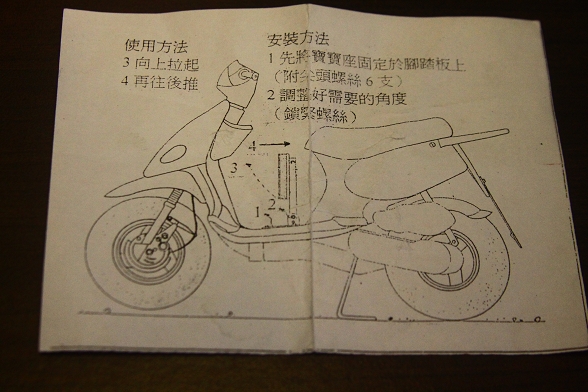 使用方法
3 向上拉起
4 再往後推
安裝方法
1 先將寶寶座固定於腳踏板上
（附尖頭螺絲6支）
2 調整好需要的角度
（鎖緊螺絲）
4
3
2
1